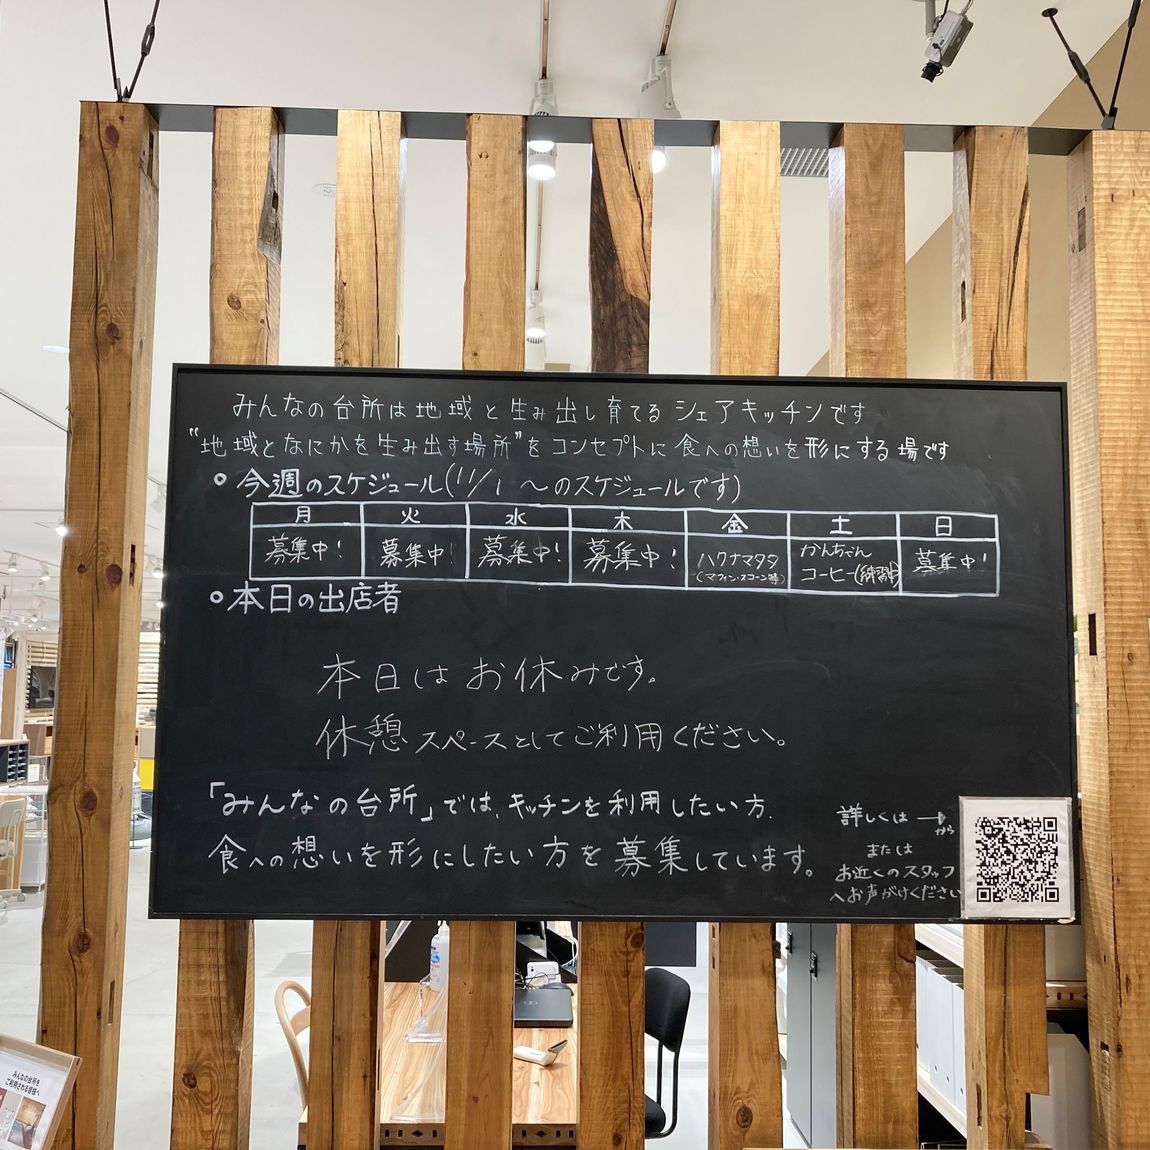 みんなの台所は地域と生み出し育てるシェアキッチンです
"地域となにかを生み出す場所"をコンセプトに食への想いを形にする場です
今週のスケジュール(11/1 〜のスケジュールです)
月 火 水 木 金 土 日
募集中! 募集中! 募集中! 募集中! ハクナマタタ (マフィン・スコーン等) かんちゃん コーヒー(練習中) 募集中!
本日の出店者
本日はお休みです。
休憩スペースとしてご利用ください。
「みんなの台所」では、キッチンを利用したい方、
食への想いを形にしたい方を募集しています。
詳しくは→から
または
お近くのスタッフ
へお声がけください
みんなの台所を
ご利用される皆様へ